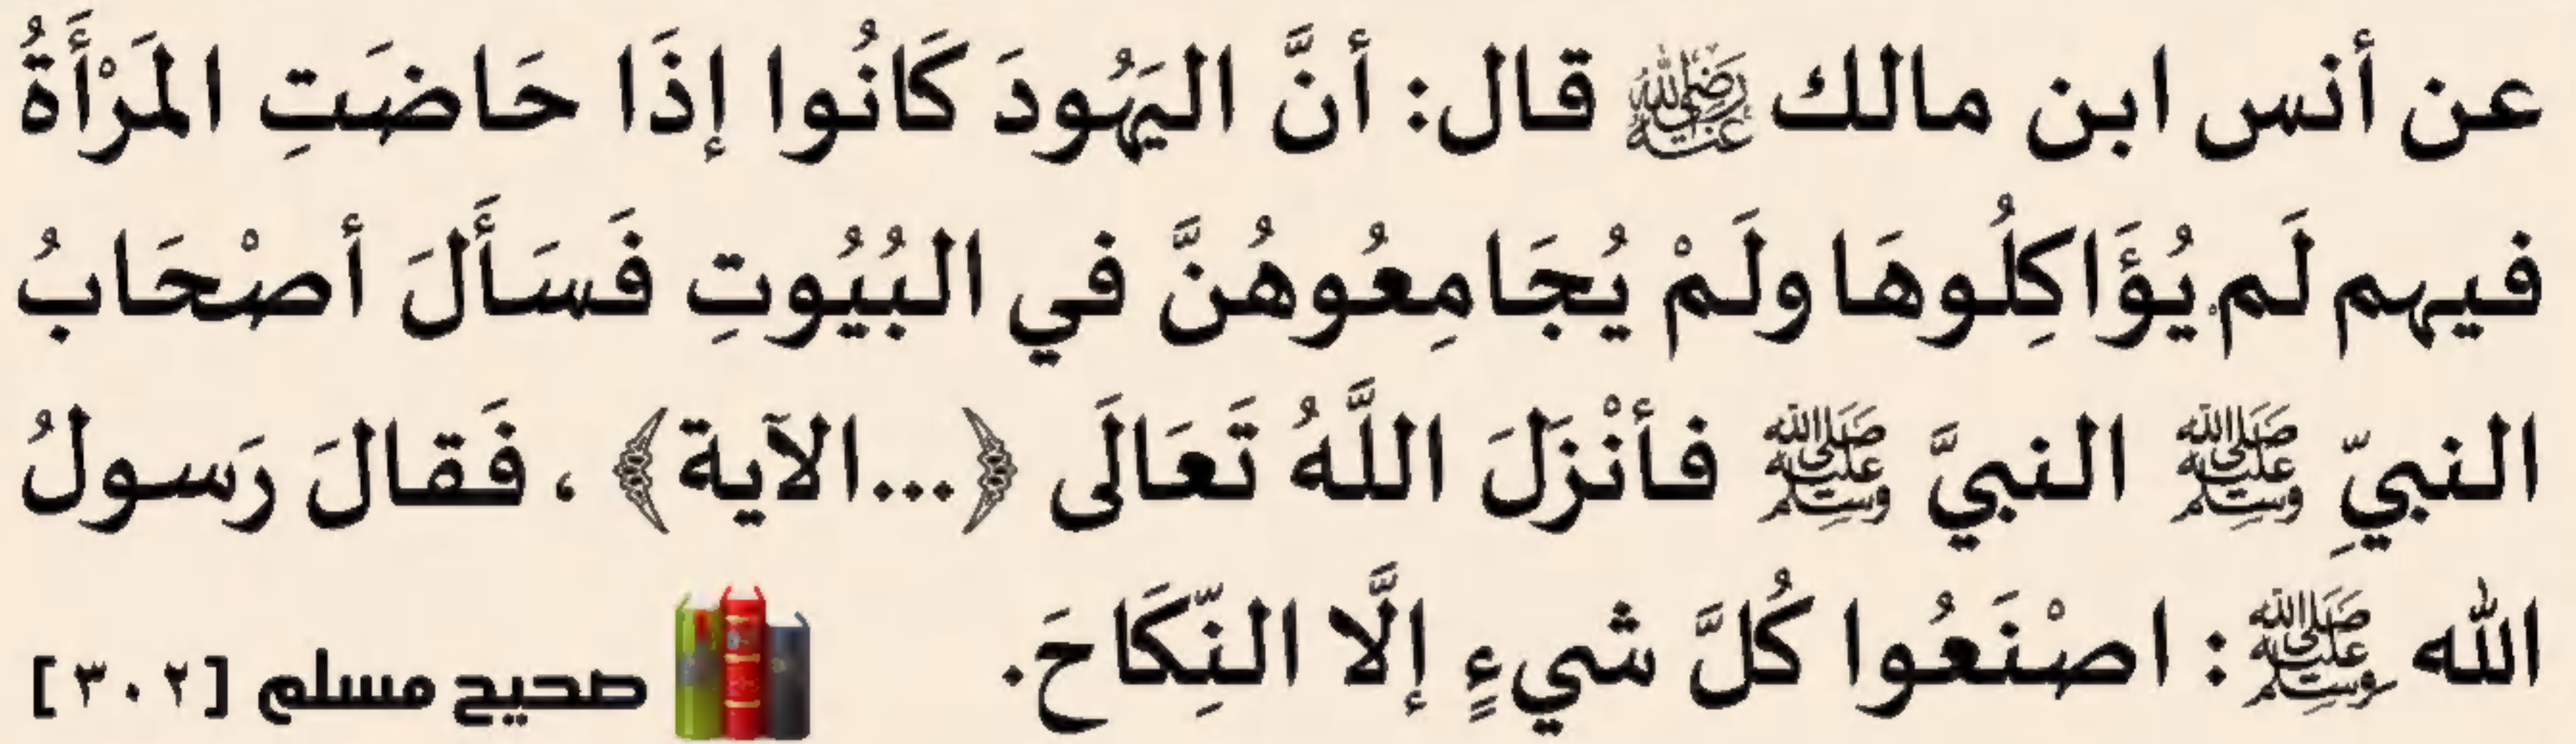 عن أنس ابن مالك رضي الله عنه قال: أنَّ اليَهُودَ كَانُوا إذَا حَاضَتِ المَرْأَةُ
فيهم لَم يُؤَاكِلُوهَا ولَمْ يُجَامِعُوهُنَّ في البُيُوتِ فَسَأَلَ أصْحَابُ
النبيِّ ﷺ النبيَّ ﷺ فأنْزَلَ اللَّهُ تَعَالَى ﴿...الآية﴾ ، فَقالَ رَسولُ
الله ﷺ: اصْنَعُوا كُلَّ شيءٍ إلَّا النِّكَاحَ.
صحيح مسلم [٣٠٢]